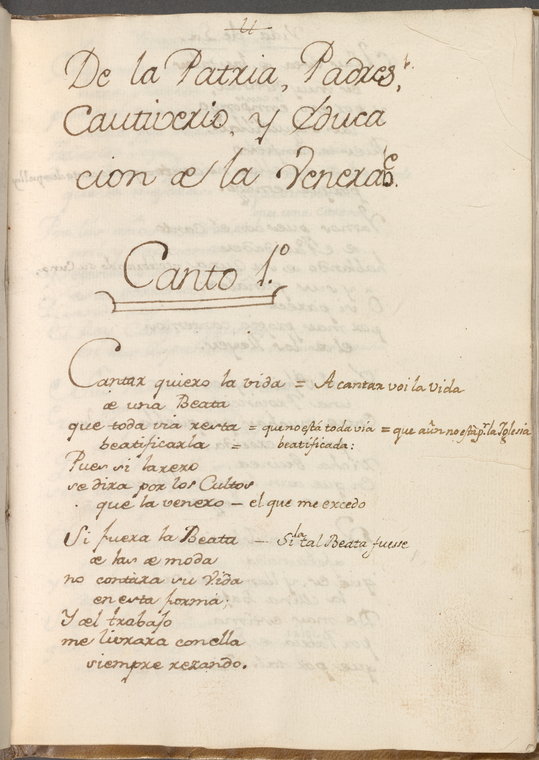 11
De la Patria, Padres,
Cautiverio, y Educa
cion de la Venerae.
Canto 1.o
Cantar quiero la vida = A cantar voi la vida
de una Beata
que toda via resta = que no está toda via = que aun no está pr. la Iglesia
beatificarla = beatificada:
Pues si la rezo
se dira por los Cultos
que la venero - el que me excedo
Si fuera la Beata - Si la tal Beata fuesse
de las de moda
no contara su vida
en esta forma:
Y del trabajo
me livrara con ella
siempre rezando.